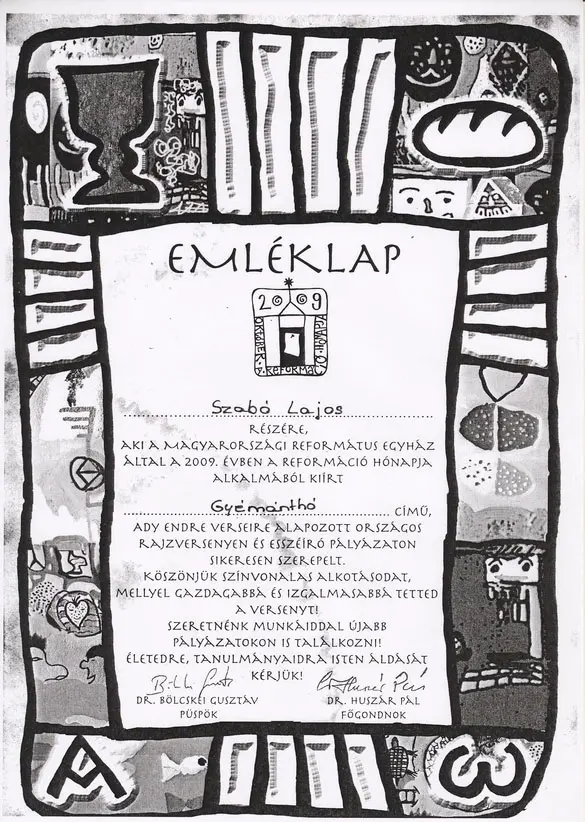 EMLÉKLAP
2009
OKTÓBER A REFORMÁCIÓ HÓNAPJA
Szabó Lajos
RÉSZÉRE,
AKI A MAGYARORSZÁGI REFORMÁTUS EGYHÁZ
ÁLTAL A 2009. ÉVBEN A REFORMÁCIÓ HÓNAPJA
ALKALMÁBÓL KIÍRT
Gyémánthó CÍMŰ,
ADY ENDRE VERSEIRE ALAPOZOTT ORSZÁGOS
RAJZVERSENYEN ÉS ESSZÉÍRÓ PÁLYÁZATON
SIKERESEN SZEREPELT.
KÖSZÖNJÜK SZÍNVONALAS ALKOTÁSODAT,
MELLYEL GAZDAGABBÁ ÉS IZGALMASABBÁ TETTED
A VERSENYT!
SZERETNÉNK MUNKÁIDDAL ÚJABB
PÁLYÁZATOKON IS TALÁLKOZNI!
ÉLETEDRE, TANULMÁNYAIDRA ISTEN ÁLDÁSÁT
KÉRJÜK!
DR. BÖLCSKEI GUSZTÁV DR. HUSZÁR PÁL
PÜSPÖK FŐGONDNOK
A ω